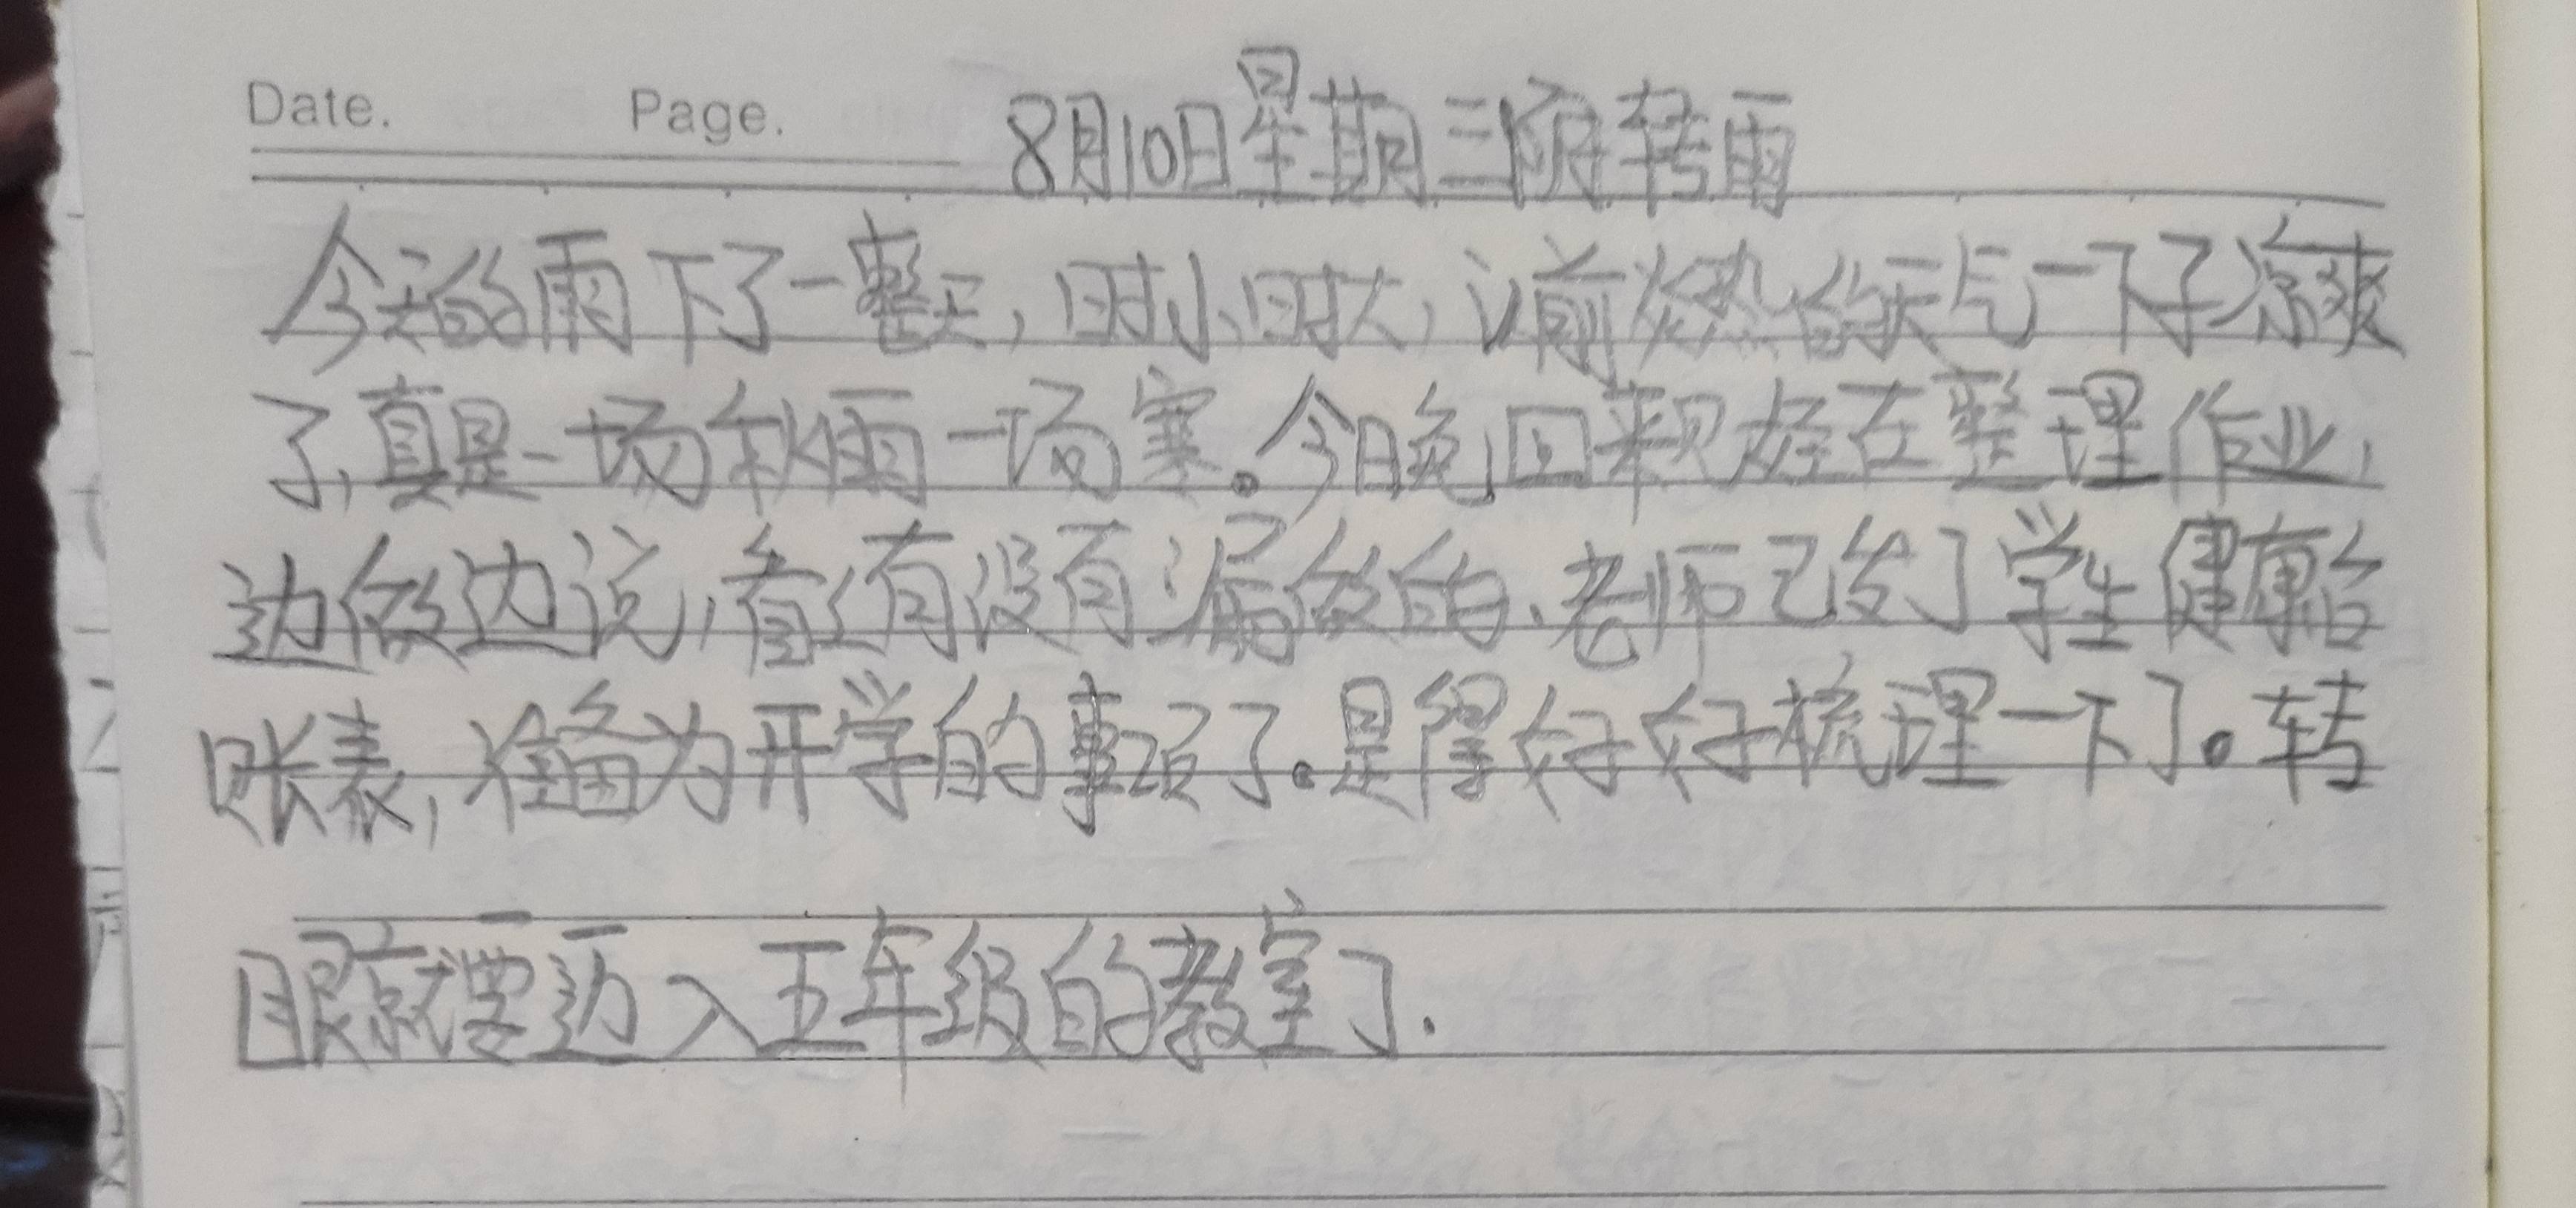 Date. Page. 8月10日星期三阴转雨
今天的雨下了一整天,时小时大,前炎热的天气一下子凉爽
了,真是一场秋雨一场寒。今日晚回来现好在整理作业,
边做边说,看看有没有漏做的.老师已发了学生健康台
账表,准备为开学的事项了。是得好好梳理一下了。转
眼就要迈入五年级的教室了.